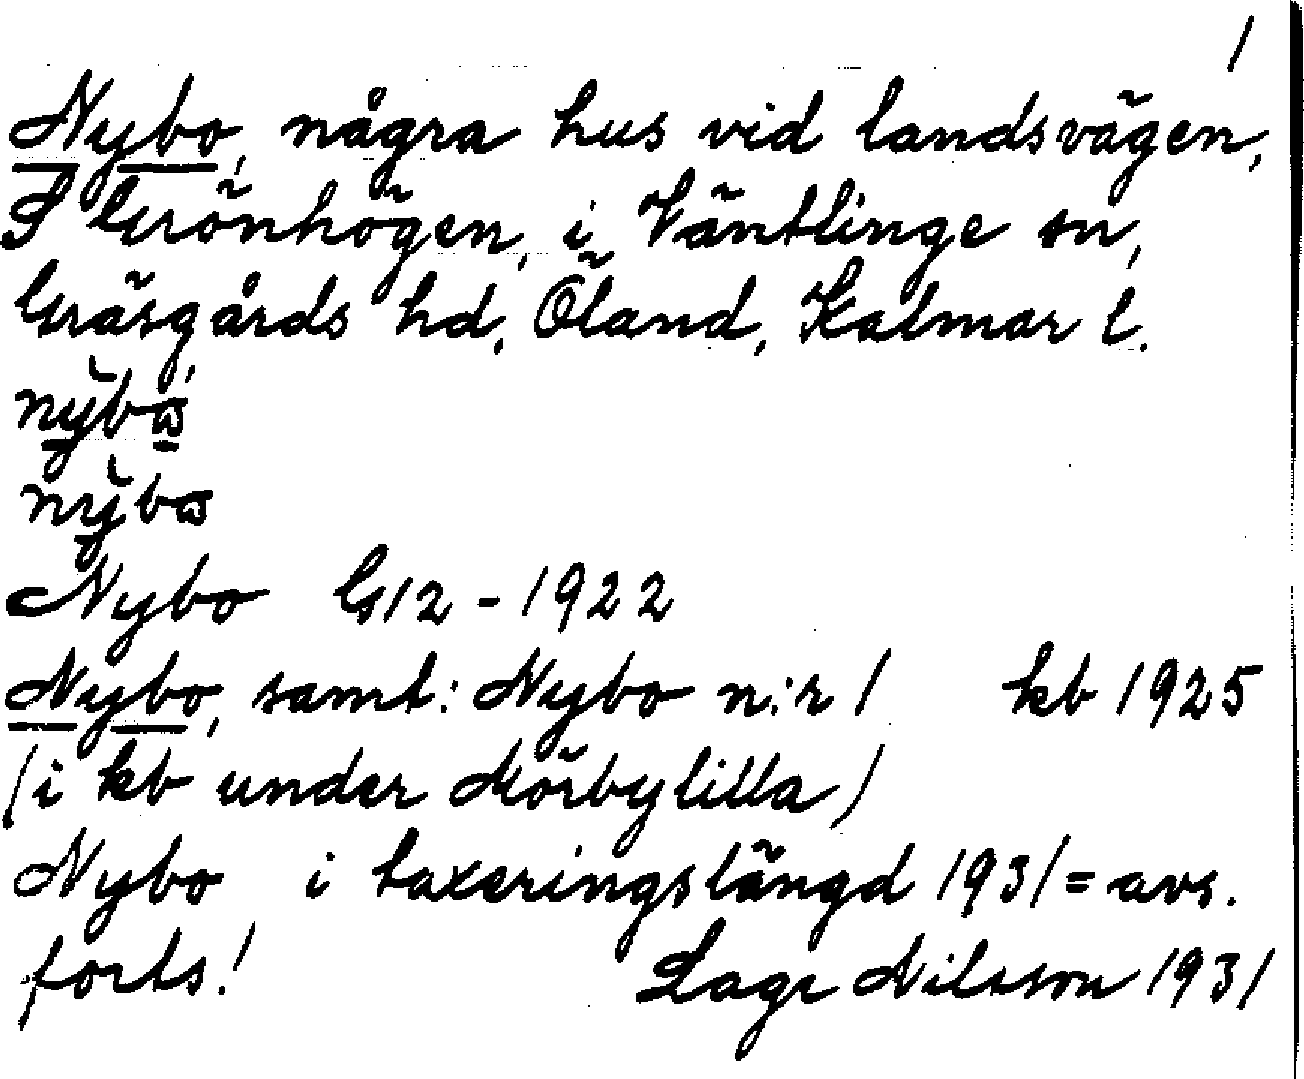 1
Nybo, några hus vid landsvägen,
S Grönhögen, i Ventlinge sn,
Gräsgårds hd, Öland, Kalmar l.
Nybo G12 - 1922
Nybo, samt: Nybo n:r 1 kb 1925
(i kb under Mörbylilla)
Nybo i taxeringslängd 1931 = avs.
forts! Lage Nilsson 1931